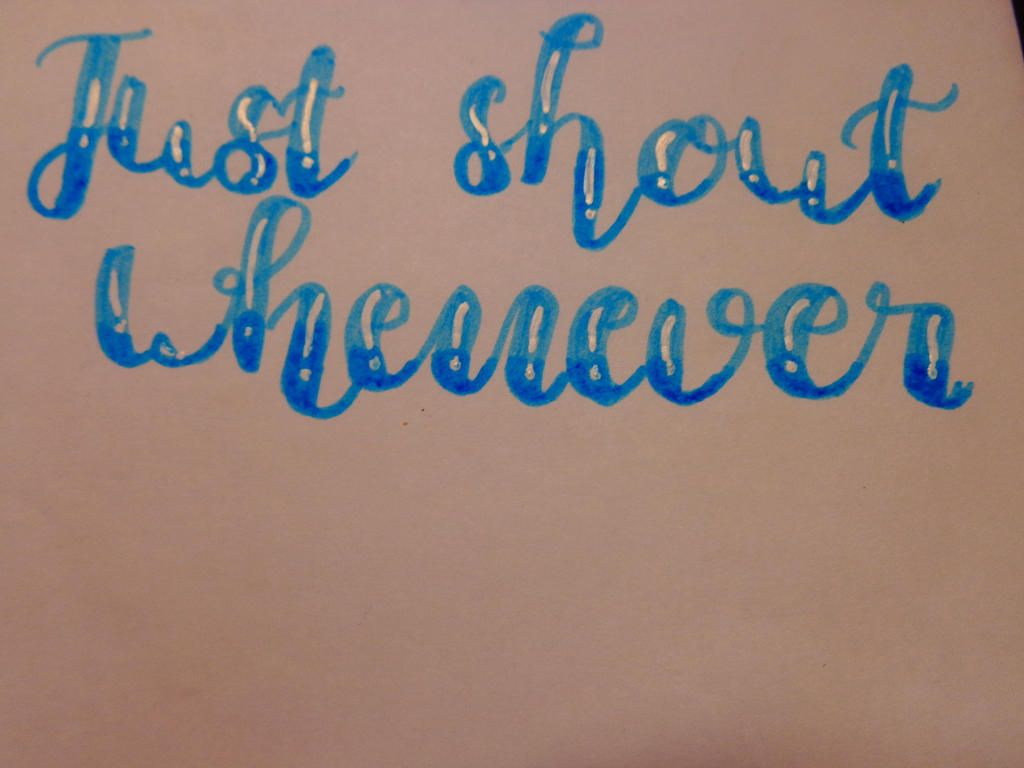 Just shout
whenever